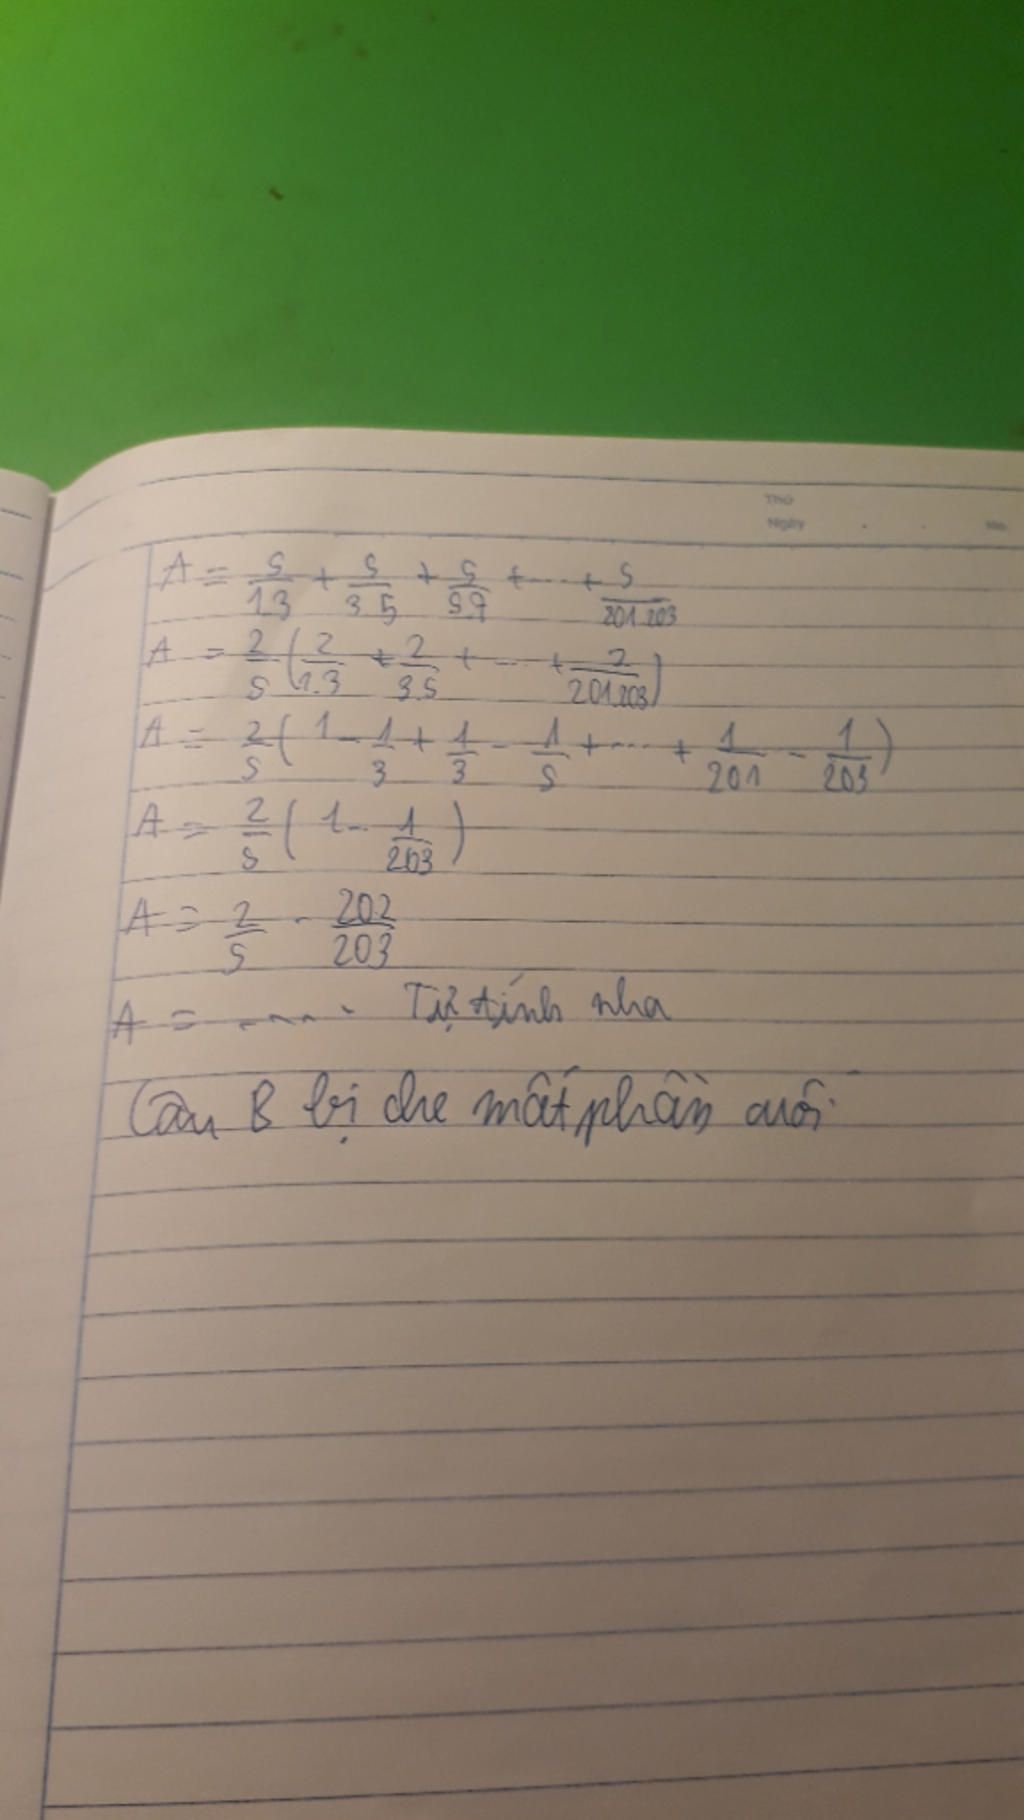 Thứ
Ngày . . No.
A = 5/1.3 + 5/3.5 + 5/5.7 + ... + 5/201.203
A = 2/5 (2/1.3 + 2/3.5 + ... + 2/201.203)
A = 2/5 (1 - 1/3 + 1/3 - 1/5 + ... + 1/201 - 1/203)
A = 2/5 (1 - 1/203)
A = 2/5 . 202/203
A = ..... Tự tính nha
Câu B bị che mất phần cuối